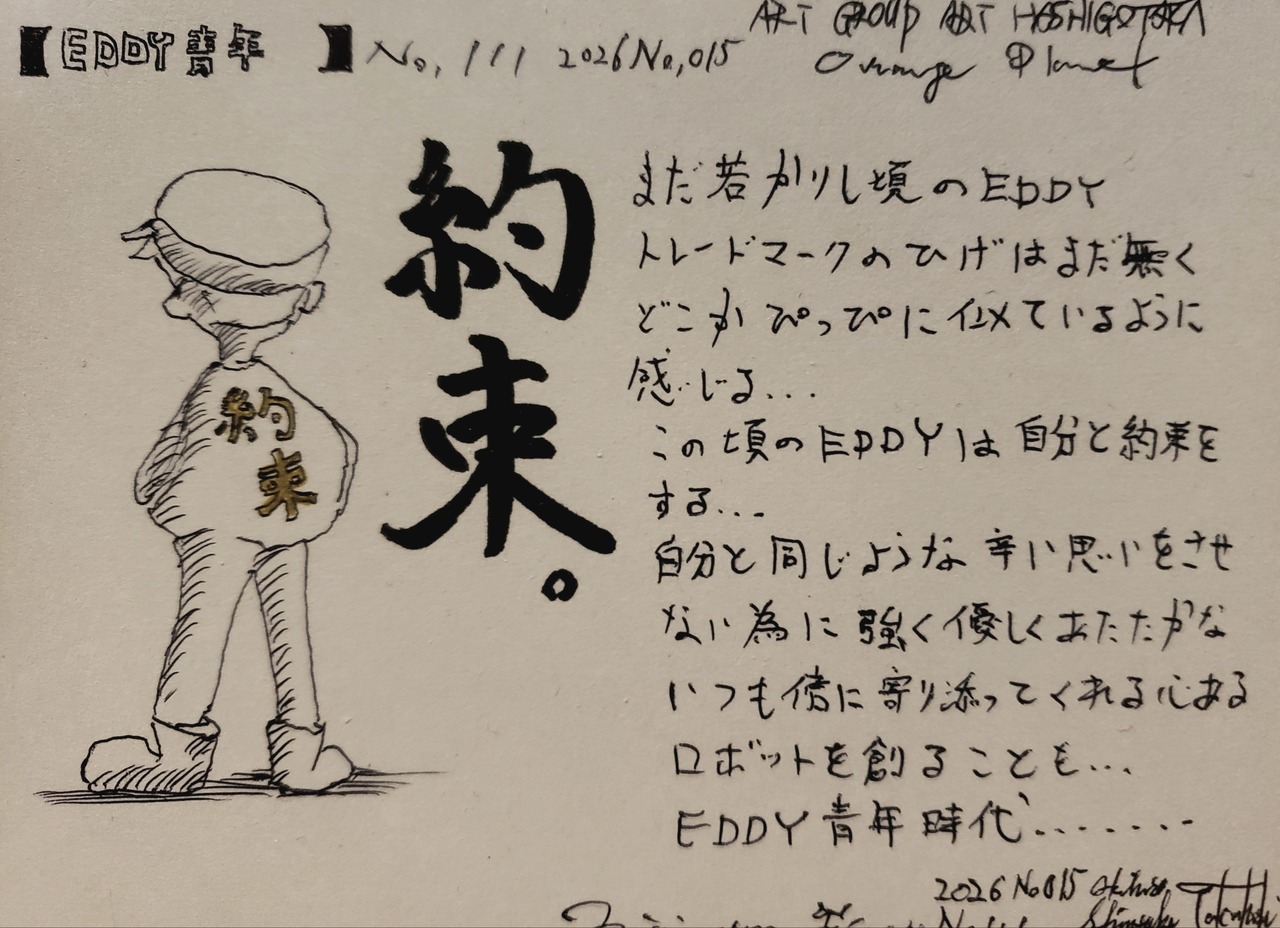 【EDDY青年　】No,111 2026No,015
ART GROUP ART HOSHIGOTAKA
Orange Planet
約束。
約束
まだ若かりし頃のEDDY
トレードマークのひげはまだ無く
どこかぴっぴに似ているように
感じる...
この頃のEDDYは自分と約束を
する...
自分と同じような辛い思いをさせ
ない為に強く優しくあたたかな
いつも傍に寄り添ってくれる心ある
ロボットを創ることも...
EDDY青年時代........
2026 No015